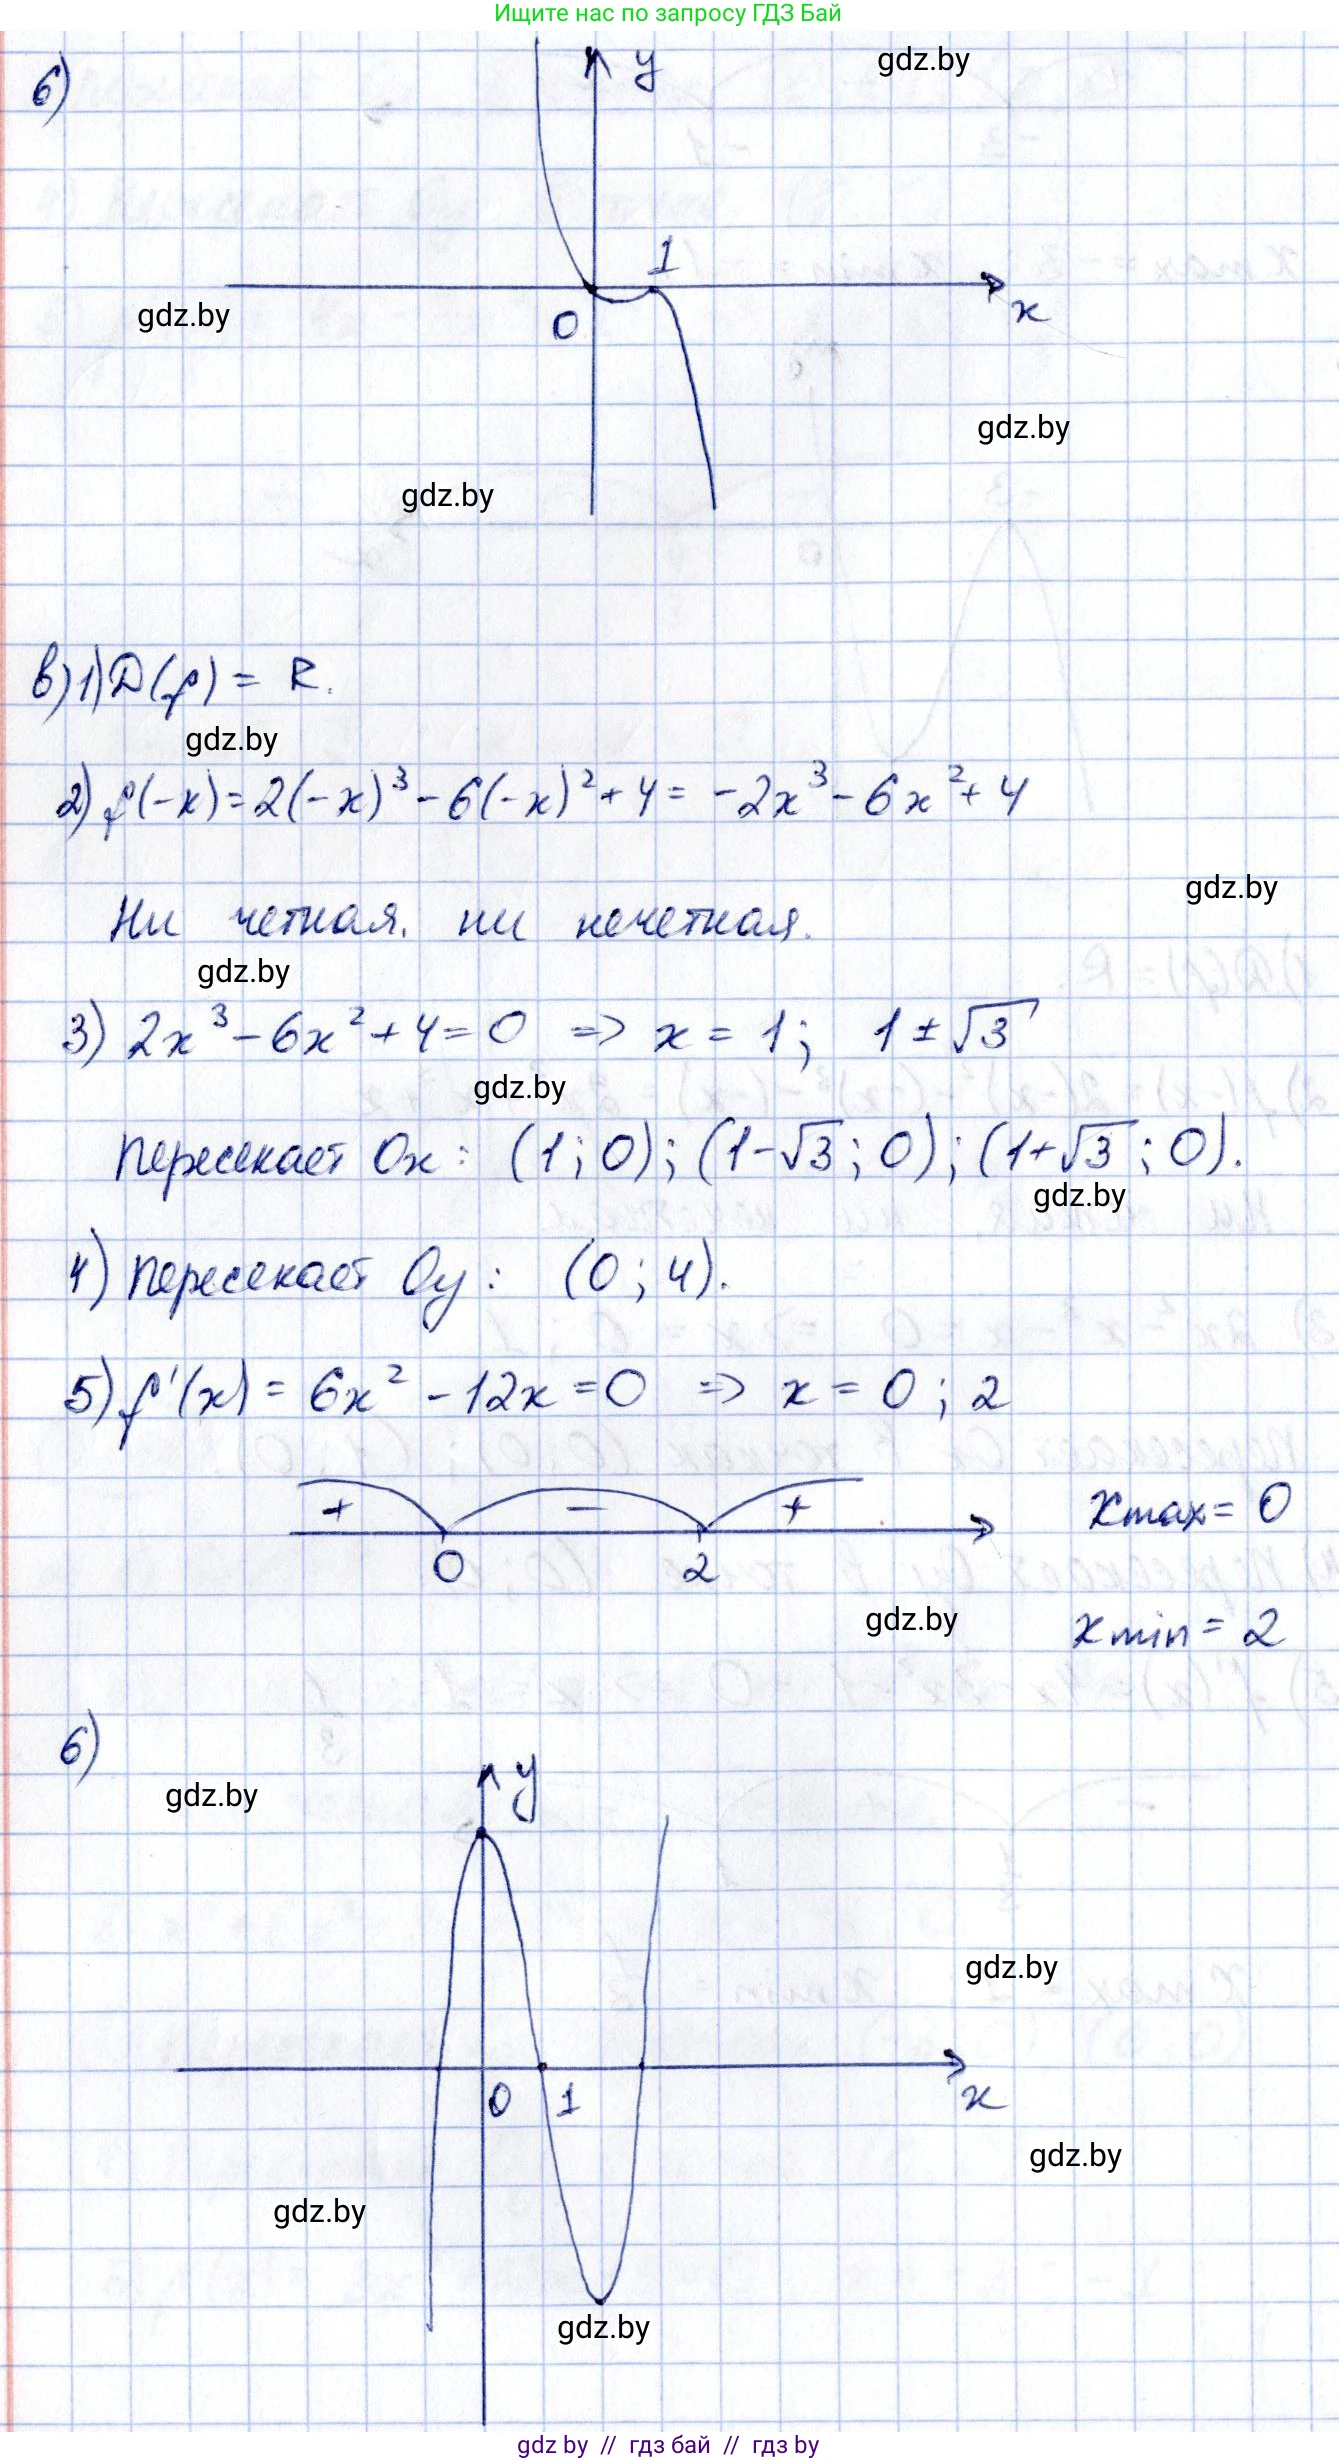 Ищите нас по запросу ГДЗ Бай
6)
y
gdz.by
1
gdz.by
0
x
gdz.by
gdz.by
в) 1) D(f) = R.
gdz.by
2) f(-x) = 2(-x)³ - 6(-x)² + 4 = -2x³ - 6x² + 4
gdz.by
Ни четная. ни нечетная.
gdz.by
3) 2x³ - 6x² + 4 = 0 => x = 1; 1 ± √3
gdz.by
Пересекает Ox: (1; 0); (1-√3; 0); (1+√3; 0).
gdz.by
4) Пересекает Oy: (0; 4).
5) f'(x) = 6x² - 12x = 0 => x = 0; 2
+ - +
xmax = 0
0 2
gdz.by
xmin = 2
6)
y
gdz.by
gdz.by
0 1
x
gdz.by
gdz.by
gdz.by
gdz by // гдз бай // gdz by